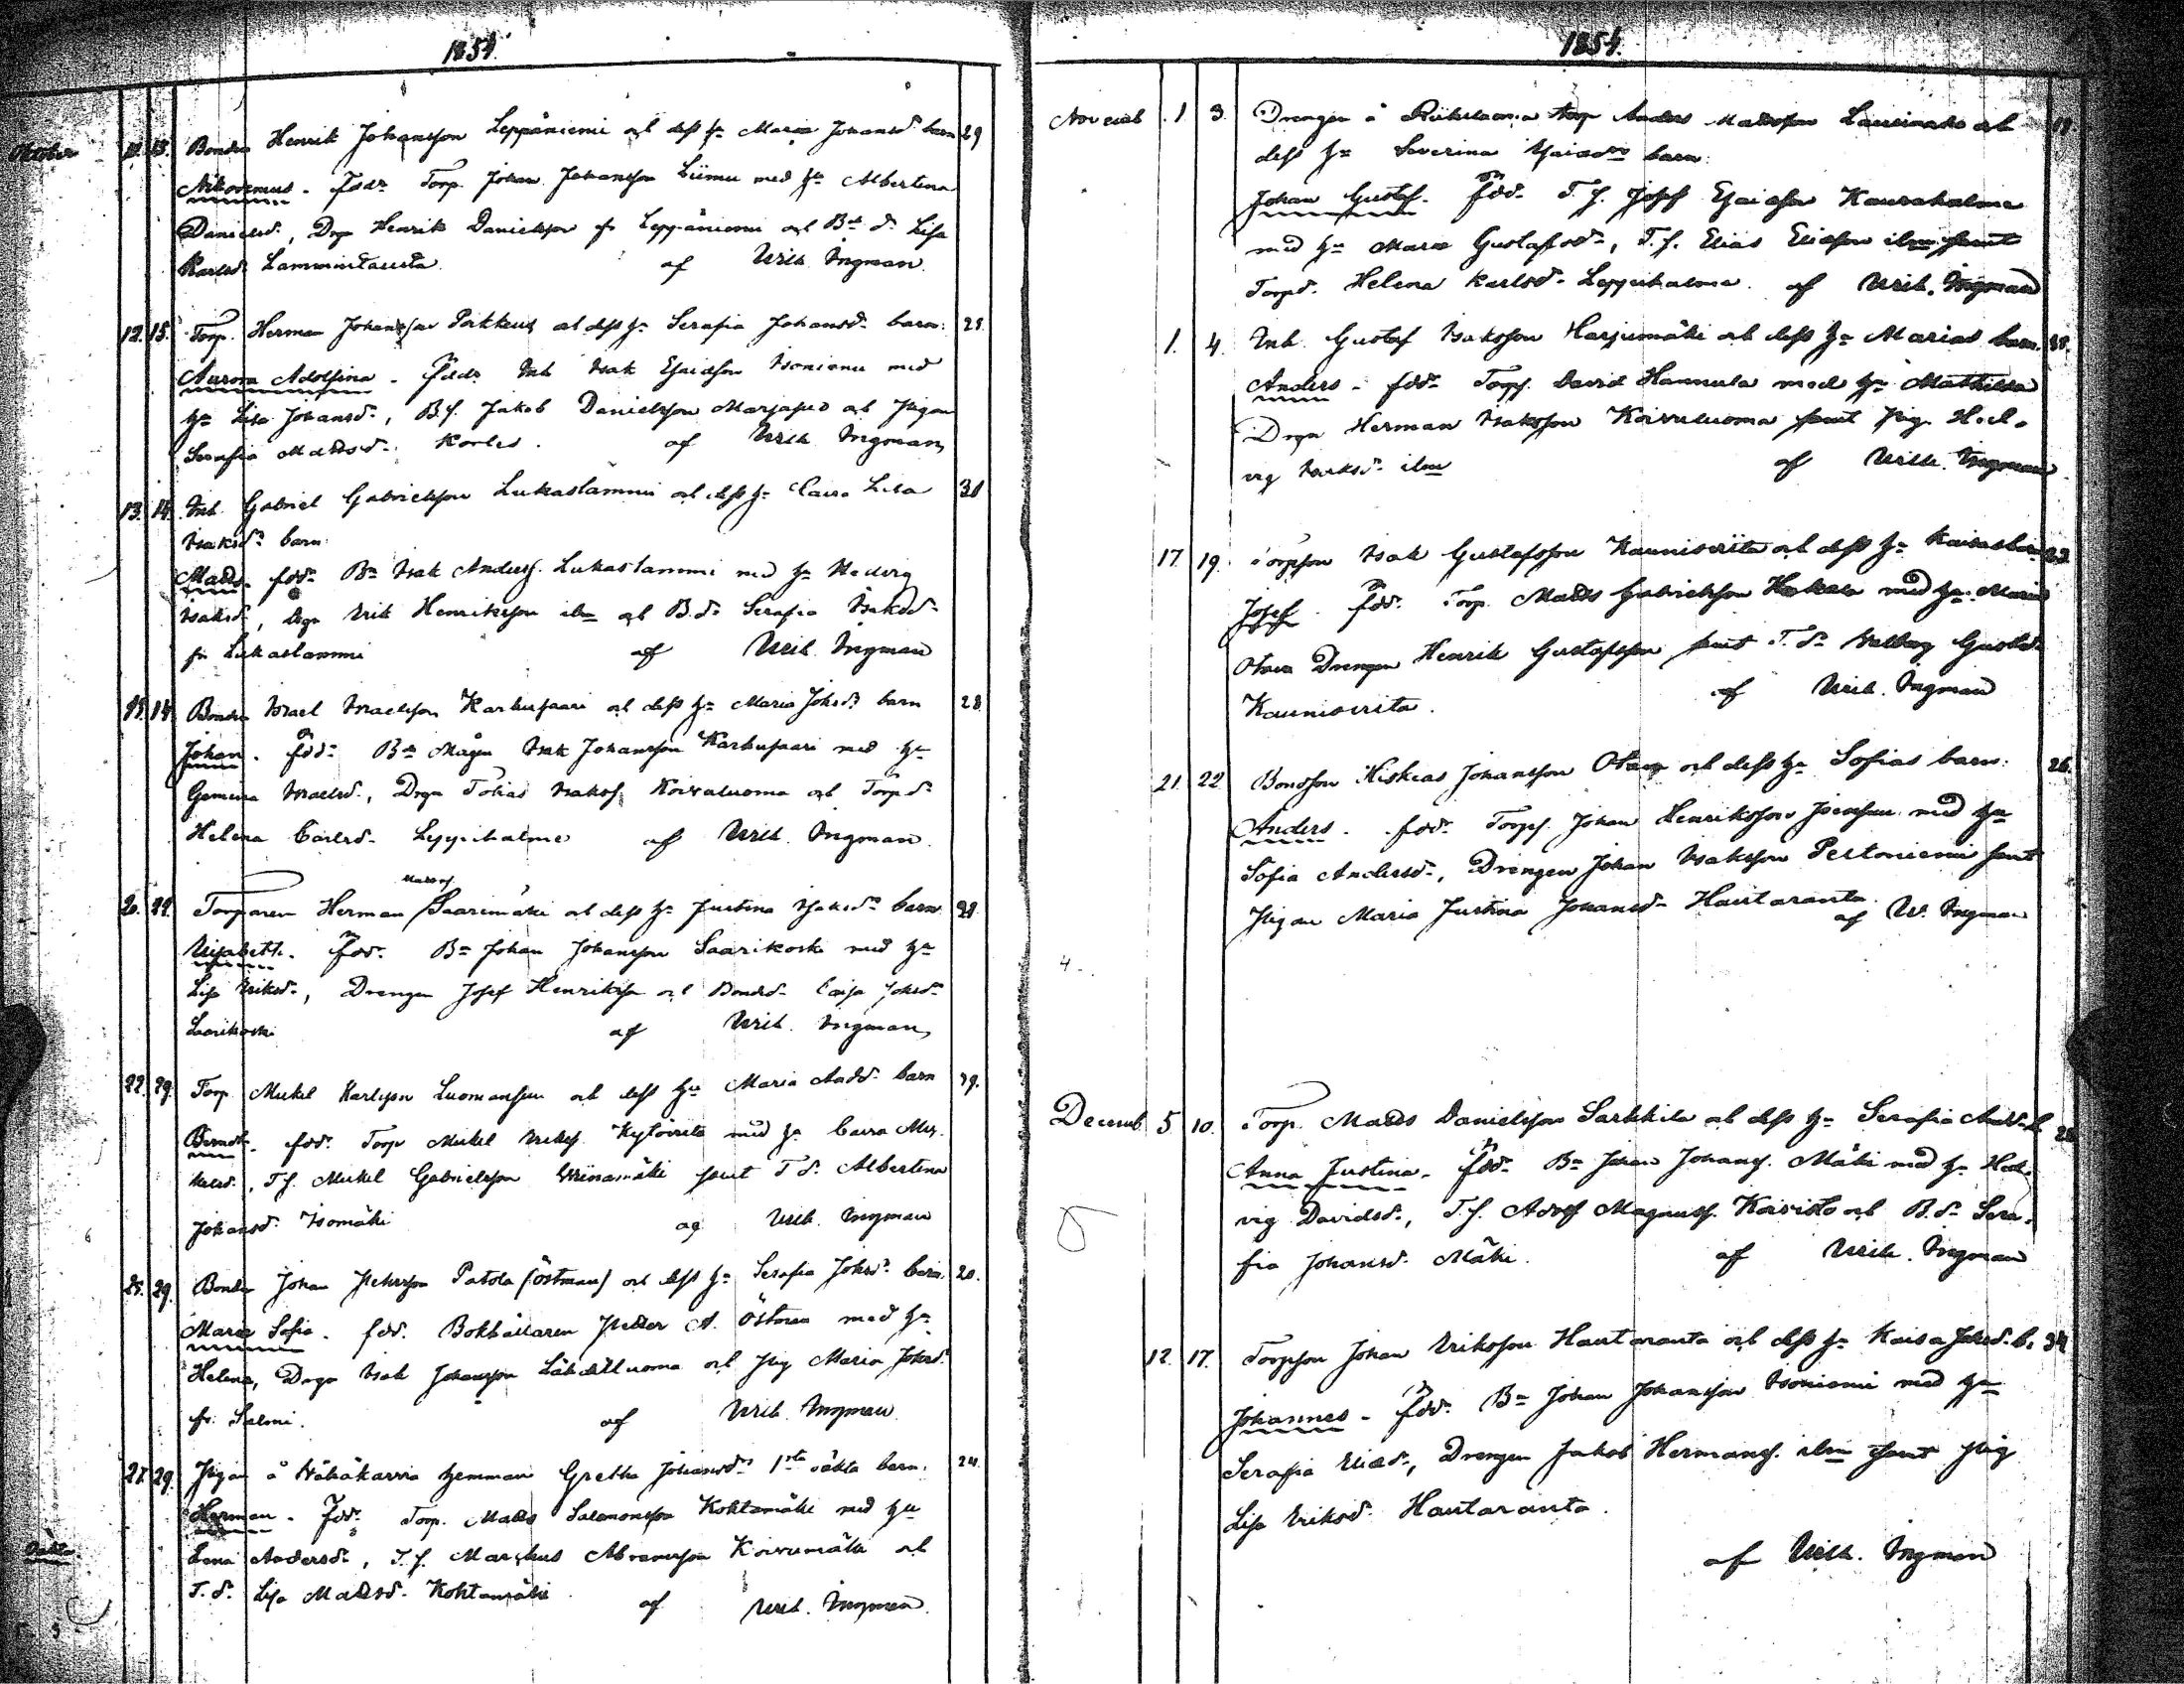 1854.
Oktober 11. 15. Bonden Henrik Johansson Leppäniemi och dess h:u Maria Johansd:s barn 29
Nikodemus. Fadr: Torp. Johan Johansson Liimu med h:u Albertina
Danielsd:, Drgn Henrik Danielsson fr. Leppäniemi och B:d: Lisa
Karlsd: Lammintausta. af Wilh. Ingman.
12. 15. Torp. Herman Johansson Pokkeus och dess h:u Serafia Johansd: barn: 25.
Aurora Adolfina. Fadr: Inh Isak Esaiasson Isoniemi med
h:u Lisa Johansd:, B.s. Jakob Danielsson Marjapuro och Pigan
Serafia Mattsd: af Wilh Ingman,
13. 14. Inh. Gabriel Gabrielsson Lukaslammi och dess h:u Caisa Lisa 30
Isaksd:s barn:
Matts. fdd: B:n Isak Anders. Lukaslammi med h:u Hedvig
Isaksd:, drgn Erik Henriksson ibm och B.d: Serafia Isaksd:
fr. Lukaslammi af Wilh. Ingman
Bonden Israel Israelsson Karhusaari och dess h:u Maria Johsd:s barn 28.
Johan. fdd: B:n Mågen Isak Johansson Karhusaari med h:u
Gemina Israelsd:, Drgn Tobias Isakss. Koivuluoma och Torp.d:
Helena Carlsd: Leppihalme af Wilh. Ingman.
Mattss.
20. 22. Torparen Herman Saarimäki och dess h:u Justina Isaksd:s barn 28.
Elisabeth. fdd: B:n Johan Johansson Saarikoski med h:u
Lisa Eriksd:, Drengen Josef Henriksson och Bondd: Caisa Johsd:
Saarikoski af Wilh. Ingman,
22. 29. Torp Mickel Karlsson Luomansuu och dess h:u Maria Andd: barn 39.
fdd: Torp Mickel Erikss. Kytöviita med h:u Caisa Mic-
kelsd:, T.s. Mickel Gabrielsson samt T.d: Albertina
Johansd: Isomäki af Wilh. Ingman
25. 29. Bonden Johan Pehrsson Patola (Östman) och dess h:u Serafia Johsd:s barn. 20.
Maria Sofia. fdd: Bokhållaren Petter A. Östman med h:u
Helena, Drgn Isak Johansson Lähdetluoma och Pig Maria Johsd:
fr. Salmi. af Wilh. Ingman
27. 29. Pigan å Vähäkarvia hemman Gretha Johansd:s 1sta oäkta barn. 24.
Oäkta. Herman. fdd: Torp. Matts Salomonsson Kohtamäki med h:u
Lena Andersd:, T.s. Marckus Abramsson Koivumäki och
T.d: Lisa Mattsd: Kohtamäki af Wilh. Ingman.
1854.
Novemb 1 3. Drengen å torp Anders Mattsson och 19.
dess h:u Severina Esaiasd:s barn:
Johan Gustaf. fdd: T.s. Josef Esaiasson Kaurahalme
med h:u Maria Gustafsd:, T.s. Elias Eliasson ibm samt
Torpd: Helena Karlsd: Leppihalme. af Wilh. Ingman
1. 4. Inh. Gustaf Isaksson Harjumäki och dess h:u Marias barn.
Anders. fdd: Torps. David Hannula med h:u Mathilda
Drgn Herman Isaksson Koivuluoma samt pig. Hed-
vig Isaksd: ibm af Wilh. Ingman
17. 19. Torpson Isak Gustafsson Kaunisviita och dess h:u Kaisas barn 23.
Josef. fdd: Torp. Matts Gabrielsson Hakala med h:u Maria
Drengen Henrik Gustafsson samt T.d: Walborg Gustafsd:
Kaunisviita. af Wilh. Ingman
21. 22 Bondson Hiskias Johansson och dess h:u Sofias barn: 26.
Anders. fdd: Torps. Johan Henriksson Joensuu med h:u
Sofia Andersd:, Drengen Johan Isaksson Peltoniemi samt
Pigan Maria Justina Johansd: Hautaranta af W. Ingman
Decemb 5 10. Torp. Matts Danielsson Sarkkila och dess h:u Serafia Andd: b.
Anna Justina. fdd: B:n Johan Johanss. Mäki med h:u Hed-
vig Davidsd:, T.s. Adolf Magnuss. Koivisto och B.d: Sera-
fia Johansd: Mäki. af Wilh. Ingman
12. 17. Torpson Johan Eriksson Hautaranta och dess h:u Kaisa Johsd: b. 34
Johannes. fdd: B:n Johan Johansson Isoniemi med h:u
Serafia Eliasd:, Drengen Jakob Hermanss. ibm samt pig
Lisa Eriksd: Hautaranta.
af Wilh. Ingman